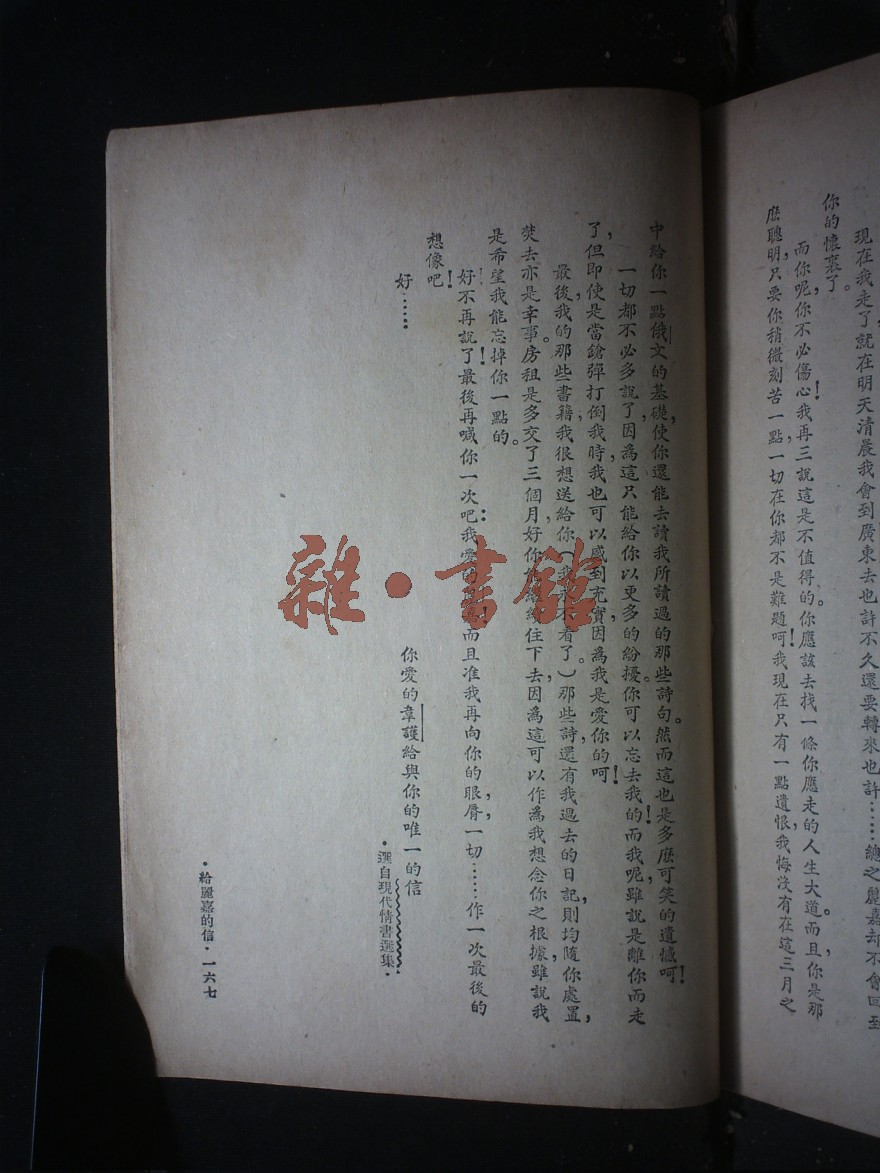 現在我走了，就在明天清晨，我會到廣東去，也許不久還要轉來，也許……總之，麗嘉，却不會回至
你的懷裏了。
而你呢，你不必傷心！我再三說，這是不值得的。你應該去找一條你應走的人生大道。而且，你是那
麽聰明，只要你稍微刻苦一點，一切在你都不是難題。呵！我現在只有一點遺恨，我悔沒有在這三月之
中給你一點俄文的基礎，使你還能去讀我所讀過的那些詩句。然而這也是多麽可笑的遺憾呵！
一切都不必多說了，因爲這只能給你以更多的紛擾。你可以忘去我的！而我呢，雖說是離你而走
了，但即使是當鎗彈打倒我時，我也可以感到充實，因爲我是愛你的呵！
最後，我的那些書籍，我很想送給你（我不看了。）那些詩，還有我過去的日記，則均隨你處置，
焚去亦是幸事。房租是多交了三個月，好你住下去，因爲這可以作爲我想念你之根據，雖說我
是希望我能忘掉你一點的。
好！不再說了！最後再喊你一次吧：我愛的！而且准我再向你的眼，脣，一切……作一次最後的
想像吧！
好……
你愛的韋護給與你的唯一的信
·選自現代情書選集·
·給麗嘉的信·一六七
雜·書館